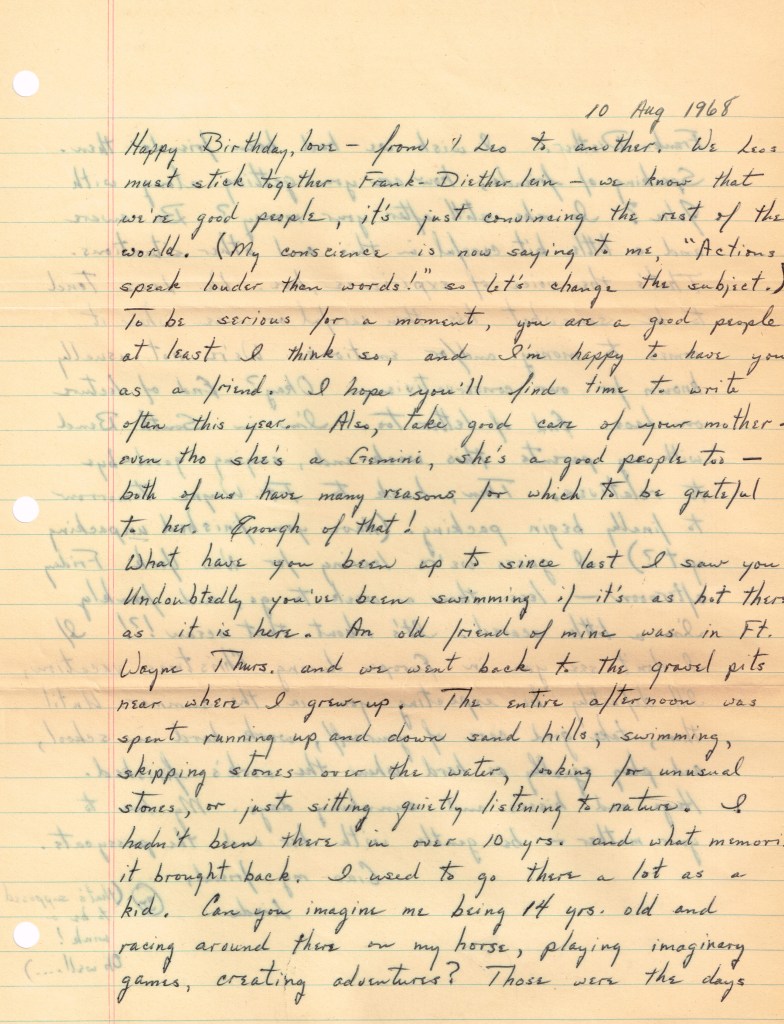 10 Aug 1968
Happy Birthday, love – from 1 Leo to another. We Leos
must stick together Frank-Diether lein – we know that
we're good people, it's just convincing the rest of the
world. (My conscience is now saying to me, "Actions
speak louder than words!" so let's change the subject.)
To be serious for a moment, you are a good people
at least I think so, and I'm happy to have you
as a friend. I hope you'll find time to write
often this year. Also, take good care of your mother –
even tho she's a Gemini, she's a good people too –
both of us have many reasons for which to be grateful
to her. Enough of that!
What have you been up to since last I saw you
Undoubtedly you've been swimming if it's as hot there
as it is here. An old friend of mine was in Ft.
Wayne Thurs. and we went back to the gravel pits
near where I grew-up. The entire afternoon was
spent running up and down sand hills, swimming,
skipping stones over the water, looking for unusual
stones, or just sitting quietly listening to nature. I
hadn't been there in over 10 yrs. and what memori
it brought back. I used to go there a lot as a
kid. Can you imagine me being 14 yrs. old and
racing around there on my horse, playing imaginary
games, creating adventures? Those were the days